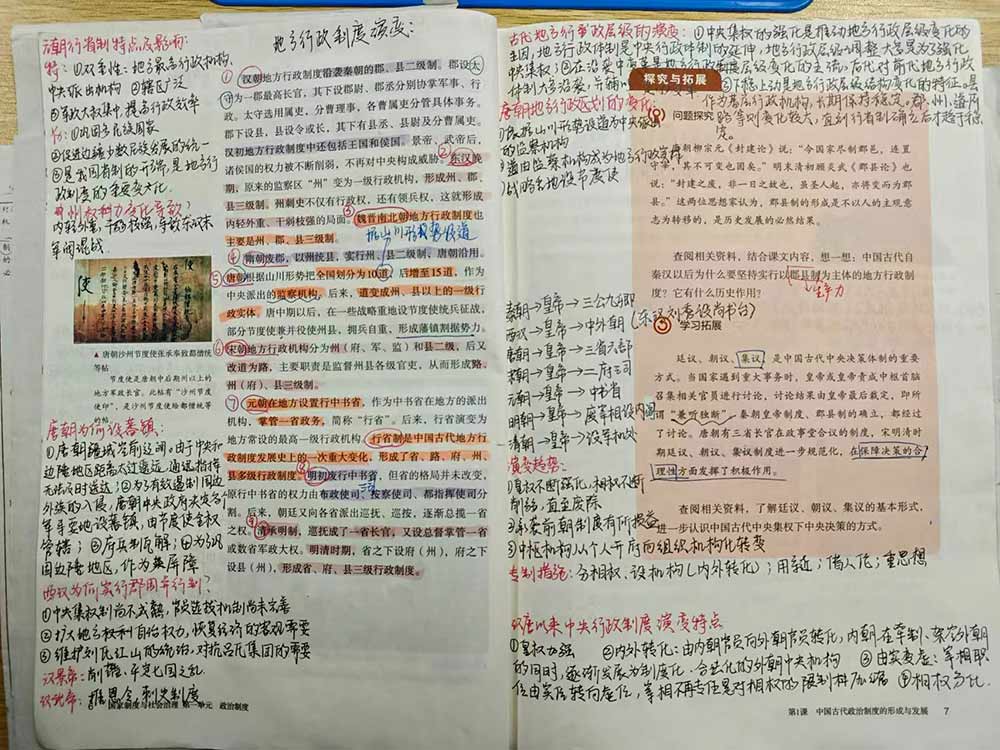 元朝行省制特点及影响:
特:①双重性:地方最高行政机构,
中央派出机构 ②辖区广泛
③军政大权集中,提高行政效率
①巩固多民族国家
②促进边疆少数民族发展的统一
③是我国省制的开端,是地方行
政制度的重要变化
州权利力变化导致?
内轻外重,干弱枝强,导致东汉末
年间混战
▲ 唐朝沙州节度使张承奉致都僧统
等帖
节度使是唐朝中后期州以上的
地方军政长官。此帖有“沙州节度
使印”,是沙州节度使给都僧统等
的帖。
唐朝为何设藩镇:
①唐朝疆域空前辽阔。由于中央和
边陲地区距离太过遥远,通讯指挥
无法及时送达;②为了有效遏制周边
外族的入侵,唐朝中央政府
由节度使全权
管辖;③府兵制瓦解;④为巩
固边陲地区,作为屏障
西汉为何实行郡国并行制?
①中央集权制尚不成熟,官员选拔机制尚未完善
②扩大地方权利自治权力,恢复经济的客观需要
③维护刘氏江山的统治,对抗吕氏集团的需要
汉景帝:削藩,平定七国之乱
汉武帝:推恩令,刺史制度
国家制度与社会治理 第一单元 政治制度
地方行政制度演变:
① 汉朝地方行政制度沿袭秦朝的郡、县二级制。郡设太
守为一郡最高长官,其下设郡尉、郡丞分别协掌军事、行
政。太守选用属吏,分曹理事,各曹属吏分管具体事务。
郡下设县,县设令或长,其下有县丞、县尉及分曹属吏。
汉初地方行政制度中还包括王国和侯国。景帝、武帝后,
诸侯国的权力被不断削弱,不再对中央构成威胁。②东汉晚
期,原来的监察区“州”变为一级行政机构,形成州、郡、
县三级制。州刺史不仅有行政权,还有领兵权,这就形成
内轻外重、干弱枝强的局面。③魏晋南北朝地方行政制度也
主要是州、郡、县三级制。
据山川形势设道
④ 隋朝废郡,以州统县,实行州、县二级制,唐朝沿用。
⑤ 唐朝根据山川形势把全国划分为10道,后增至15道,作为
中央派出的监察机构,后来,道变成州、县以上的一级行
政实体。唐中期以后,在一些战略重地设节度使统兵征战,
部分节度使兼并役使州县,拥兵自重、形成藩镇割据势力。
⑥ 宋朝地方行政机构分为州(府、军、监)和县二级,后又
改道为路,主要职责是监督州县各级官吏,从而形成路、
州(府)、县三级制。
⑦ 元朝在地方设置行中书省,作为中书省在地方的派出
机构,掌管一省政务,简称“行省”。后来,行省演变为
地方常设的最高一级行政机构。行省制是中国古代地方行
政制度发展史上的一次重大变化,形成了省、路、府、州、
县多级行政制度。⑧明初废行中书省,但省的格局并未改变,
原行中书省的权力由布政使司、按察使司、都指挥使司分
割。后来,朝廷又向各省派出巡抚、巡按,逐渐总揽一省
之权。⑨清承明制,巡抚成了一省长官,又设总督掌管一省
或数省军政大权。明清时期,省之下设府(州),府之下
设县(州),形成省、府、县三级行政制度。
古代地方行政层级的演变:①中央集权的强化是推动地方行政层级变化的
主因,地方行政体制是中央行政体制的延伸,地方行政层级的调整大多是为了强化
中央集权;②在沿袭中变革是地方行政制度层级变化的主流,后代对前代地方行政
体制大多沿袭,
唐朝地方行政区划的变化:
①依据山川形势设道为中央派出
的监察机构
②道由监察机构成为地方行政实体
③战略要地设节度使
探究与拓展
问题探究
作为基层行政机构,长期保持稳定。
唐朝柳宗元《封建论》说:“今国家尽制郡邑,连置
守宰,其不可变也固矣。”明末清初顾炎武《郡县论》也
说:“封建之废,非一日之故也,虽圣人起,亦将变而为郡
县。”这两位思想家认为,郡县制的形成是不以人的主观意
志为转移的,是历史发展的必然结果。
查阅相关资料,结合课文内容,想一想:中国古代自
秦汉以后为什么要坚持实行以郡县制为主体的地方行政制
度?它有什么历史作用?
生产力
秦朝→皇帝→三公九卿
西汉→皇帝→中外朝(东汉刘秀设尚书台)
唐朝→皇帝→三省六部
宋朝→皇帝→二府三司
元朝→皇帝→中书省
明朝→皇帝→废宰相设内阁
清朝→皇帝→设军机处
学习拓展
廷议、朝议、集议,是中国古代中央决策体制的重要
方式。当国家遇到重大事务时,皇帝或皇帝责成中枢首脑
召集相关官员进行讨论,讨论结果由皇帝最后裁定,即所
谓“兼听独断”。秦朝皇帝制度、郡县制的确立,都经过
了讨论。唐朝有三省长官在政事堂合议的制度,宋明清时
期廷议、朝议、集议制度进一步规范化,在保障决策的合
理性方面发挥了积极作用。
查阅相关资料,了解廷议、朝议、集议的基本形式,
进一步认识中国古代中央集权下中央决策的方式。
演变趋势:
①皇权不断强化,相权不断
削弱,直至废除
②承袭前朝制度有所损益
③中枢机构从个人开府向组织机构化转变
专制措施:分相权、设机构(内外转化);用亲近;倚人化;重思想
汉唐以来中央行政制度演变特点
①皇权加强 ②内外转化:由内朝官员向外朝官员转化,内朝在牵制、架空外朝
的同时,逐渐发展为制度化、合法化的外朝中央机构 ③由实变虚:宰相职
位由实位转向虚位,宰相不再专任是对相权的限制和压缩 ④相权分化.
第1课 中国古代政治制度的形成与发展 7